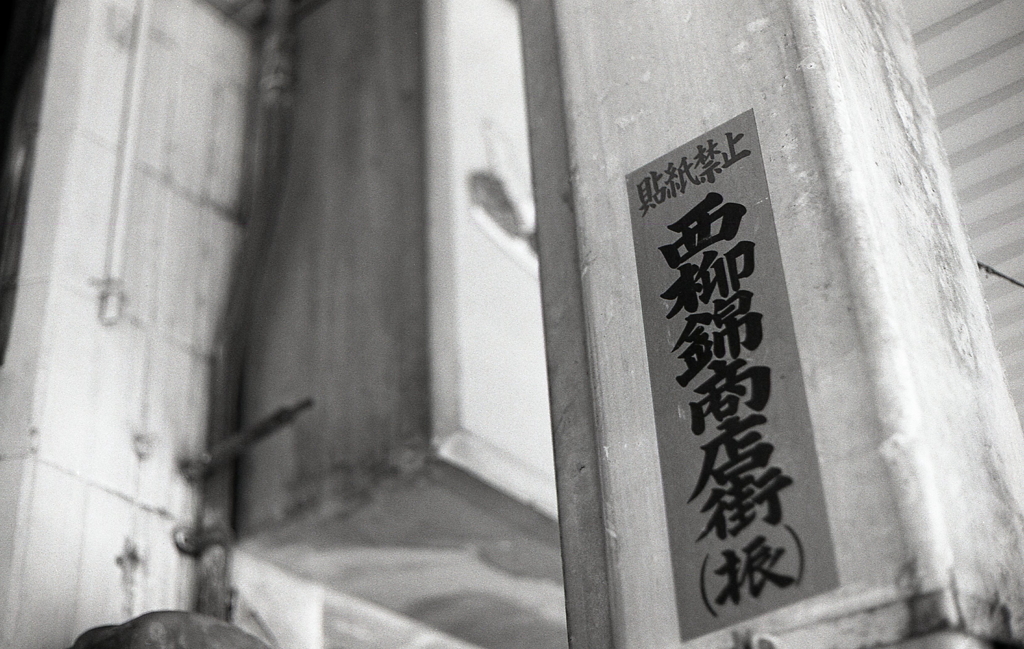 貼紙禁止
西柳錦商店街(振)